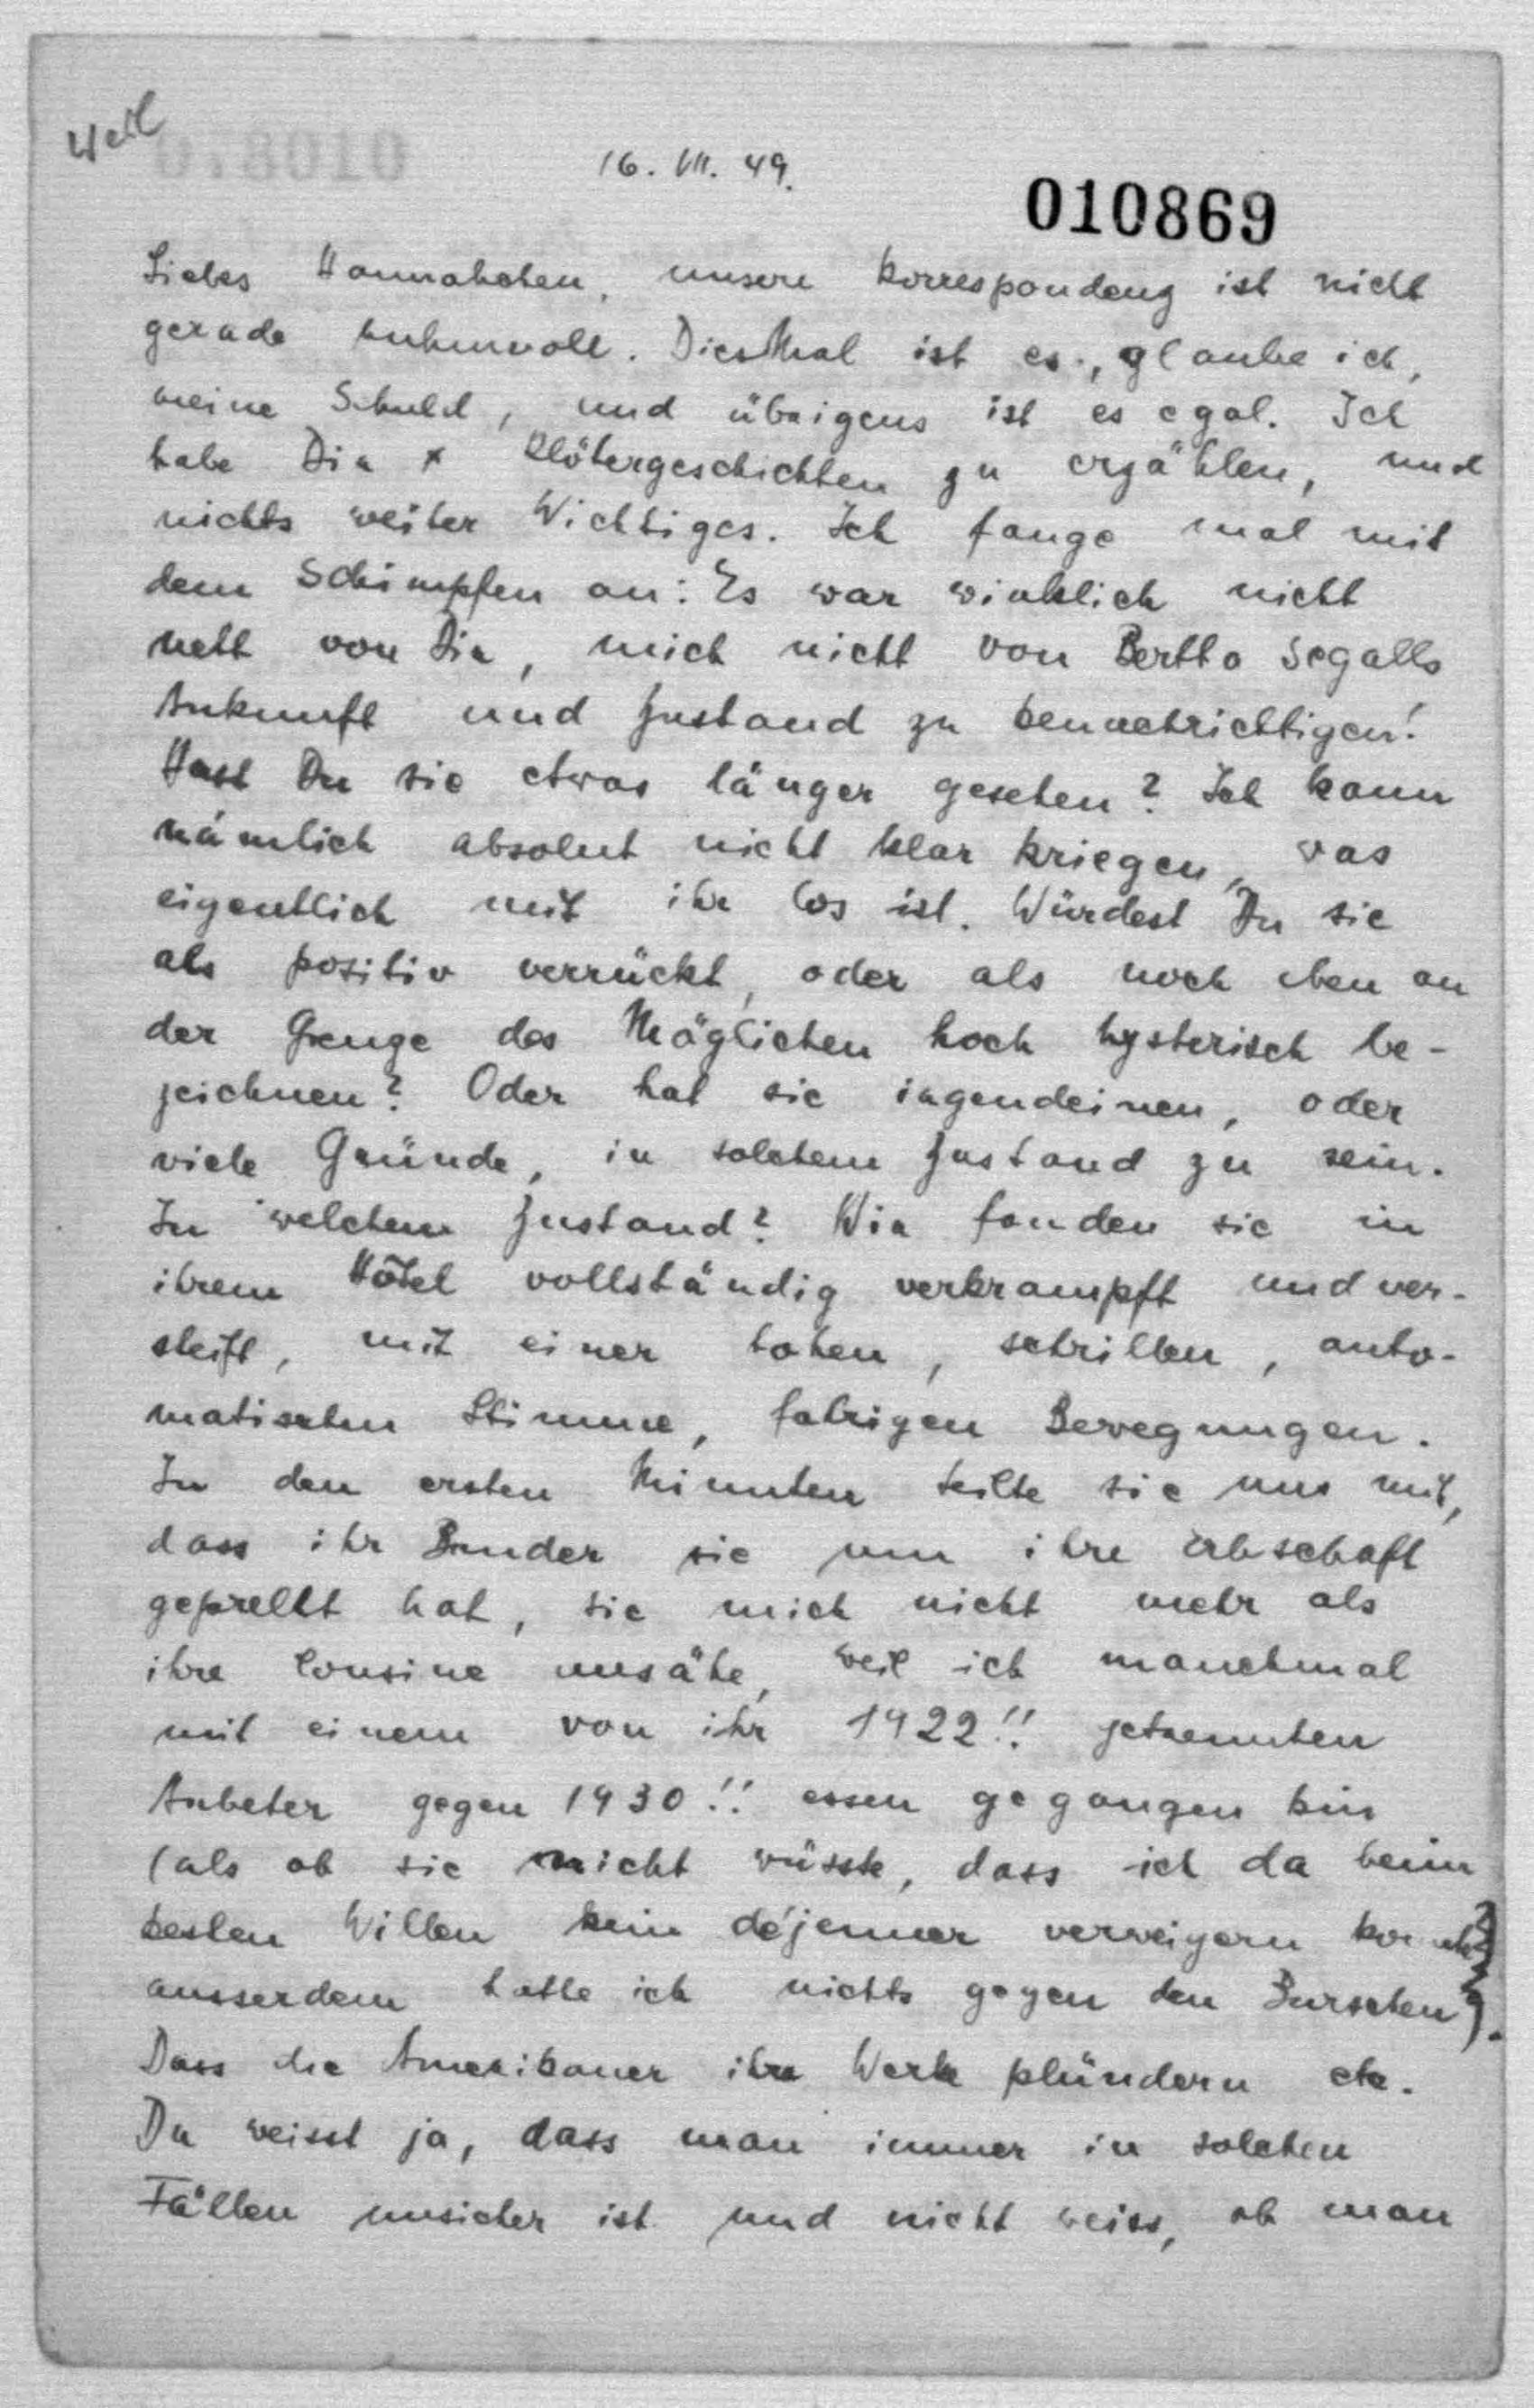 Weil
16. VII. 49.
010869
Liebes Hannahchen, unsere Korrespondenz ist nicht
gerade ruhmvoll. Diesmal ist es, glaube ich,
meine Schuld, und übrigens ist es egal. Ich
habe Dir x Klötergeschichten zu erzählen, und
nichts weiter Wichtiges. Ich fange mal mit
dem Schimpfen an: Es war wirklich nicht
nett von Dir, mich nicht von Bertha Segalls
Ankunft und Zustand zu benachrichtigen!
Hast Du sie etwas länger gesehen? Ich kann
nämlich absolut nicht klar kriegen, was
eigentlich mit ihr los ist. Würdest Du sie
als positiv verrückt, oder als noch eben an
der Grenze des Möglichen hoch hysterisch be-
zeichnen? Oder hat sie irgendeinen, oder
viele Gründe, in solchem Zustand zu sein.
In welchem Zustand? Wir fanden sie in
ihrem Hôtel vollständig verkrampft und ver-
steift, mit einer hohen, schrillen, auto-
matischen Stimme, fahrigen Bewegungen.
In den ersten Minuten teilte sie uns mit,
dass ihr Bruder sie um ihre Erbschaft
geprellt hat, sie mich nicht mehr als
ihre Cousine ansähe, weil ich manchmal
mit einem von ihr 1922!! getrennten
Anbeter gegen 1930!! essen gegangen bin
(als ob sie nicht wüsste, dass ich da beim
besten Willen kein déjeuner verweigern konnte,
ausserdem hatte ich nichts gegen den Burschen).
Dass die Amerikaner ihre Werke plündern etc.
Du weisst ja, dass man immer in solchen
Fällen unsicher ist und nicht weiss, ob man